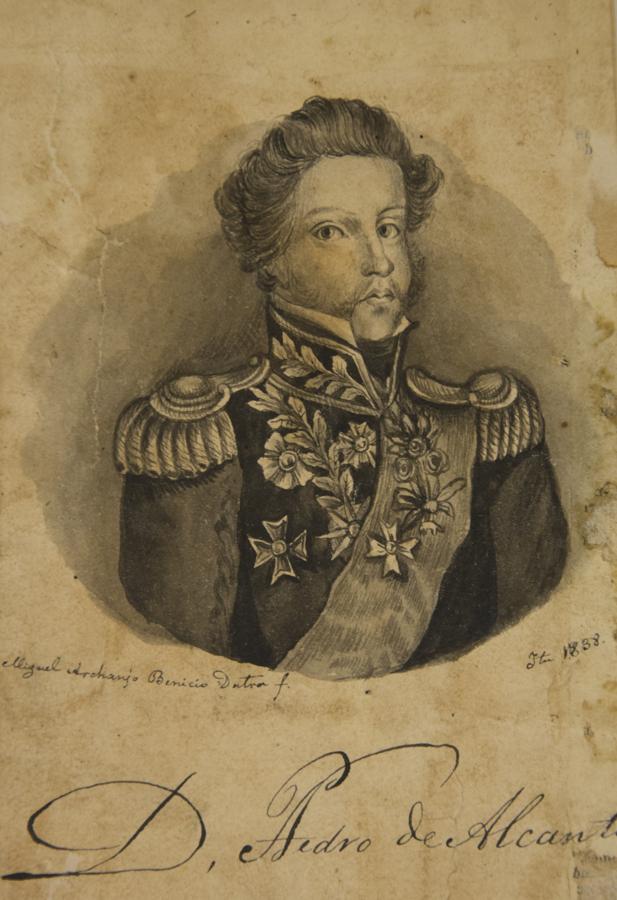 Miguel Archanjo Benicio Dutra f.
Itu 1838.
D. Pedro de Alcant